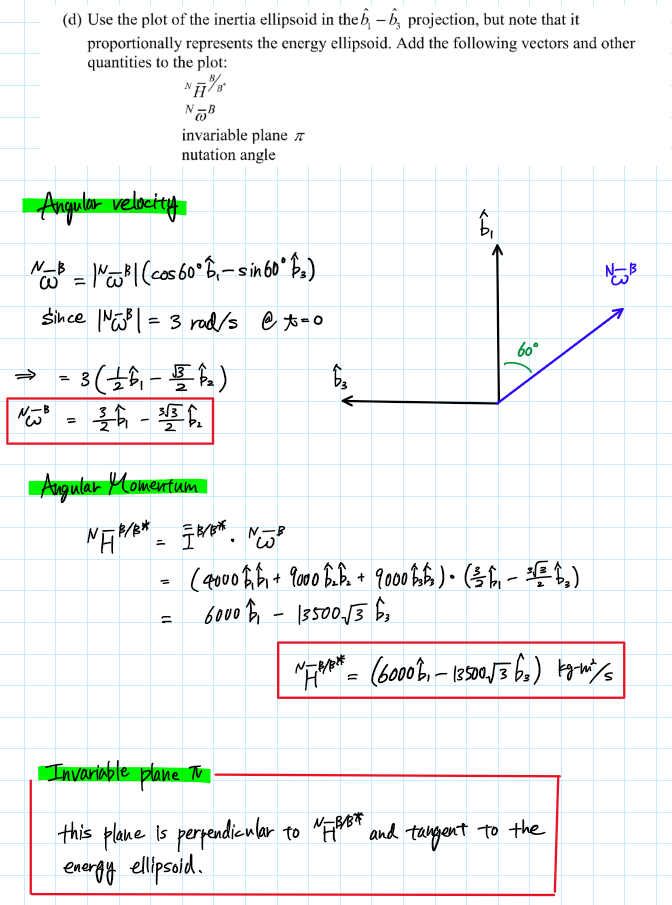 (d) Use the plot of the inertia ellipsoid in the b̂₁ – b̂₃ projection, but note that it
proportionally represents the energy ellipsoid. Add the following vectors and other
quantities to the plot:
ᴺH̄ᴮ/ᴮ*
ᴺω̄ᴮ
invariable plane π
nutation angle
Angular velocity
b̂₁
ᴺω̄ᴮ = |ᴺω̄ᴮ|(cos60° b̂₁ – sin60° b̂₃)
ᴺω̄ᴮ
since |ᴺω̄ᴮ| = 3 rad/s @ t=0
60°
⇒ = 3(1/2 b̂₁ – √3/2 b̂₂)
b̂₃
ᴺω̄ᴮ = 3/2 b̂₁ – 3√3/2 b̂₂
Angular Momentum
ᴺH̄ᴮ/ᴮ* = I̿ᴮ/ᴮ* · ᴺω̄ᴮ
= (4000 b̂₁b̂₁ + 9000 b̂₂b̂₂ + 9000 b̂₃b̂₃) · (3/2 b̂₁ – 3√3/2 b̂₃)
= 6000 b̂₁ – 13500√3 b̂₃
ᴺH̄ᴮ/ᴮ* = (6000 b̂₁ – 13500√3 b̂₃) kg-m²/s
Invariable plane π
this plane is perpendicular to ᴺH̄ᴮ/ᴮ* and tangent to the
energy ellipsoid.